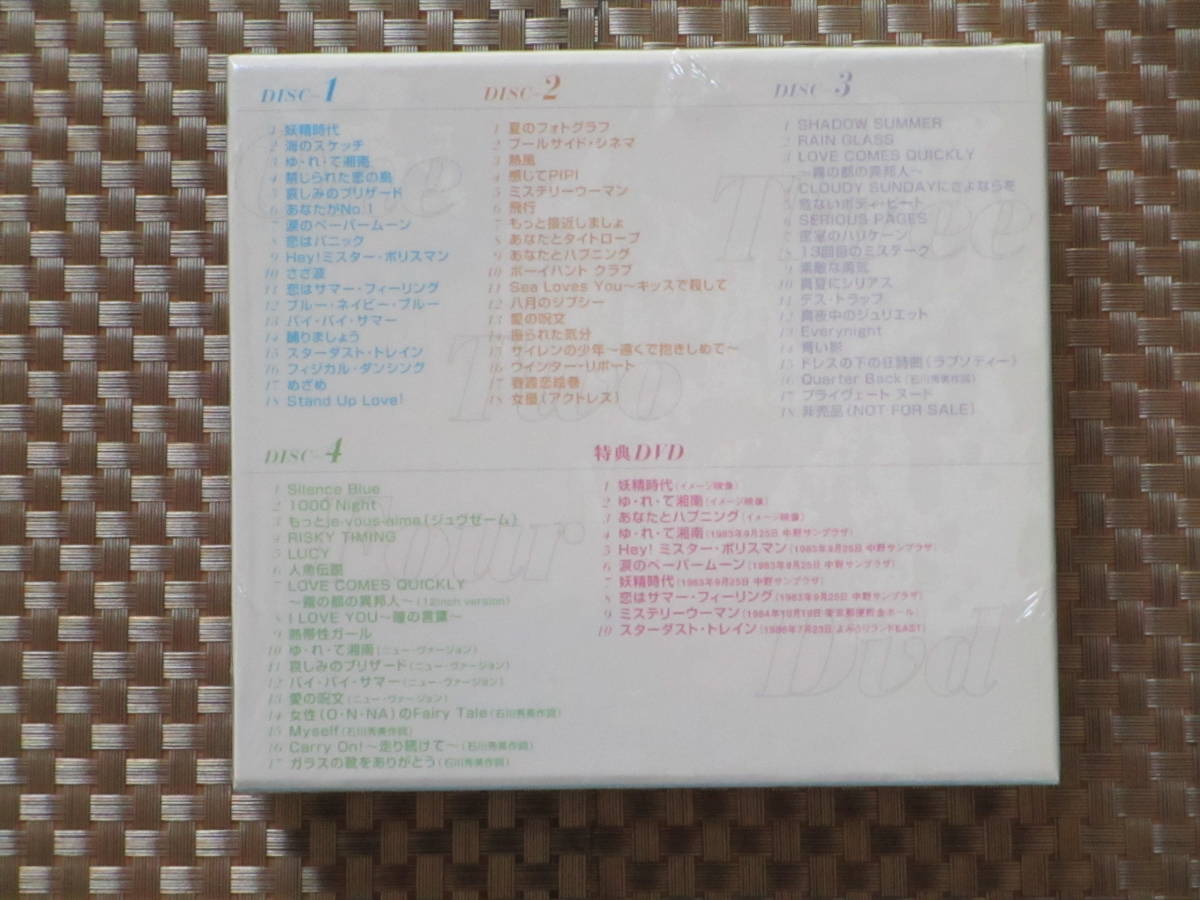 DISC-1
1 妖精時代
2 海のスケッチ
3 ゆ・れ・て湘南
4 禁じられた恋の島
5 哀しみのブリザード
6 あなたがNo.1
7 涙のペーパームーン
8 恋はパニック
9 Hey!ミスター・ポリスマン
10 さざ波
11 恋はサマー・フィーリング
12 ブルー・ネイビー・ブルー
13 バイ・バイ・サマー
14 踊りましょう
15 スターダスト・トレイン
16 フィジカル・ダンシング
17 めざめ
18 Stand Up Love!
One
DISC-2
1 夏のフォトグラフ
2 プールサイド・シネマ
3 熱風
4 感じてPIPI
5 ミステリーウーマン
6 飛行
7 もっと接近しましょ
8 あなたとタイトロープ
9 あなたとハプニング
10 ボーイハント クラブ
11 Sea Loves You〜キッスで殺して
12 八月のジプシー
13 愛の呪文
14 振られた気分
15 サイレンの少年〜遠くで抱きしめて〜
16 ウインター・リポート
17 春霞恋絵巻
18 女優(アクトレス)
Two
DISC-3
1 SHADOW SUMMER
2 RAIN GLASS
3 LOVE COMES QUICKLY
〜霧の都の異邦人〜
4 CLOUDY SUNDAYにさよならを
5 危ないボディ・ビート
6 SERIOUS PAGES
7 密室のハリケーン
8 13回目のミステーク
9 素敵な勇気
10 真夏にシリアス
11 デス・トラップ
12 真夜中のジュリエット
13 Everynight
14 青い影
15 ドレスの下の狂詩曲(ラプソディー)
16 Quarter Back (石川秀美作詞)
17 プライヴェート ヌード
18 非売品(NOT FOR SALE)
Three
DISC-4
1 Silence Blue
2 1000 Night
3 もっとje-vous-aime(ジュヴゼーム)
4 RISKY TIMING
5 LUCY
6 人魚伝説
7 LOVE COMES QUICKLY
〜霧の都の異邦人〜(12inch version)
8 I LOVE YOU〜瞳の言葉〜
9 熱帯性ガール
10 ゆ・れ・て湘南(ニュー・ヴァージョン)
11 哀しみのブリザード(ニュー・ヴァージョン)
12 バイ・バイ・サマー(ニュー・ヴァージョン)
13 愛の呪文(ニュー・ヴァージョン)
14 女性(O・N・NA)のFairy Tale(石川秀美作詞)
15 Myself(石川秀美作詞)
16 Carry On!〜走り続けて〜(石川秀美作詞)
17 ガラスの靴をありがとう(石川秀美作詞)
Four
特典DVD
1 妖精時代(イメージ映像)
2 ゆ・れ・て湘南(イメージ映像)
3 あなたとハプニング(イメージ映像)
4 ゆ・れ・て湘南(1983年9月25日 中野サンプラザ)
5 Hey! ミスター・ポリスマン(1983年9月25日 中野サンプラザ)
6 涙のペーパームーン(1983年9月25日 中野サンプラザ)
7 妖精時代(1983年9月25日 中野サンプラザ)
8 恋はサマー・フィーリング(1983年9月25日 中野サンプラザ)
9 ミステリーウーマン(1984年10月19日・東京郵便貯金ホール)
10 スターダスト・トレイン(1986年7月23日 よみうりランドEAST)
Dvd